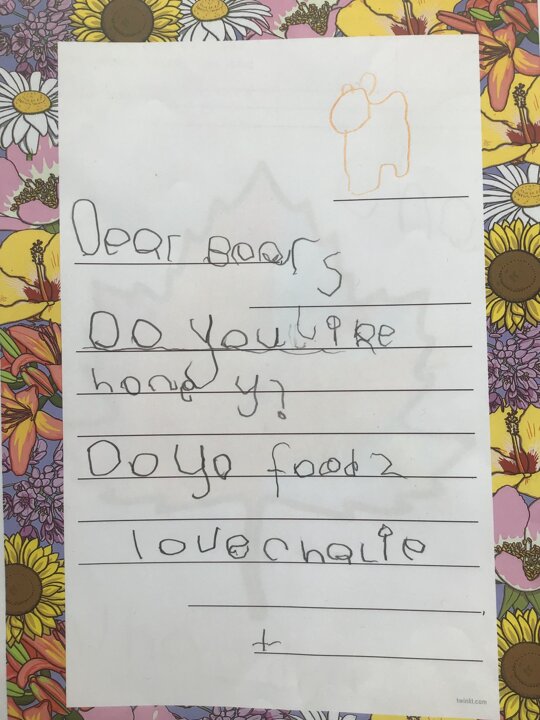 Dear Bears
Do you like
honey?
Do yo food?
love Chalie
twinkl.com